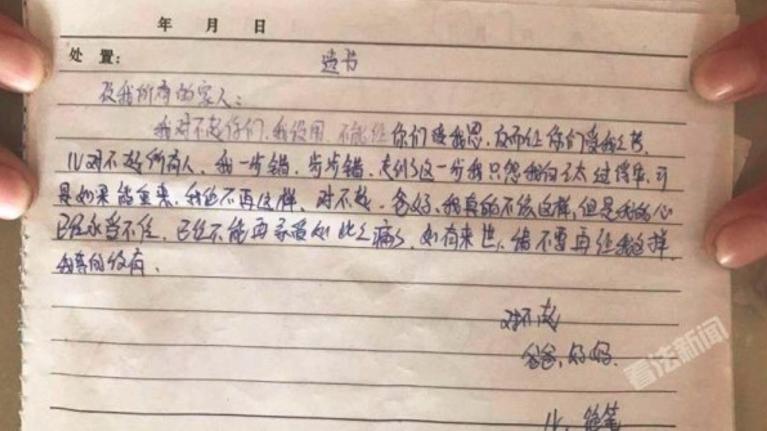 年 月 日
处 置: 遗书
及我所有的家人:
我对不起你们,我没用,不能让你们受我恩,反而让你们受我之苦,
儿对不起所有人,我一步错,步步错,走到了这一步我只怨我自己太过
是如果能重来,我绝不再这样,对不起,爸妈,我真的不该这样,但是我的心
已经承当不住,已经不能再承受如此之痛了,如有来世,请不要再让我这样,
我真的没有,
对不起
爸爸,妈妈.
儿. 绝笔
看法新闻